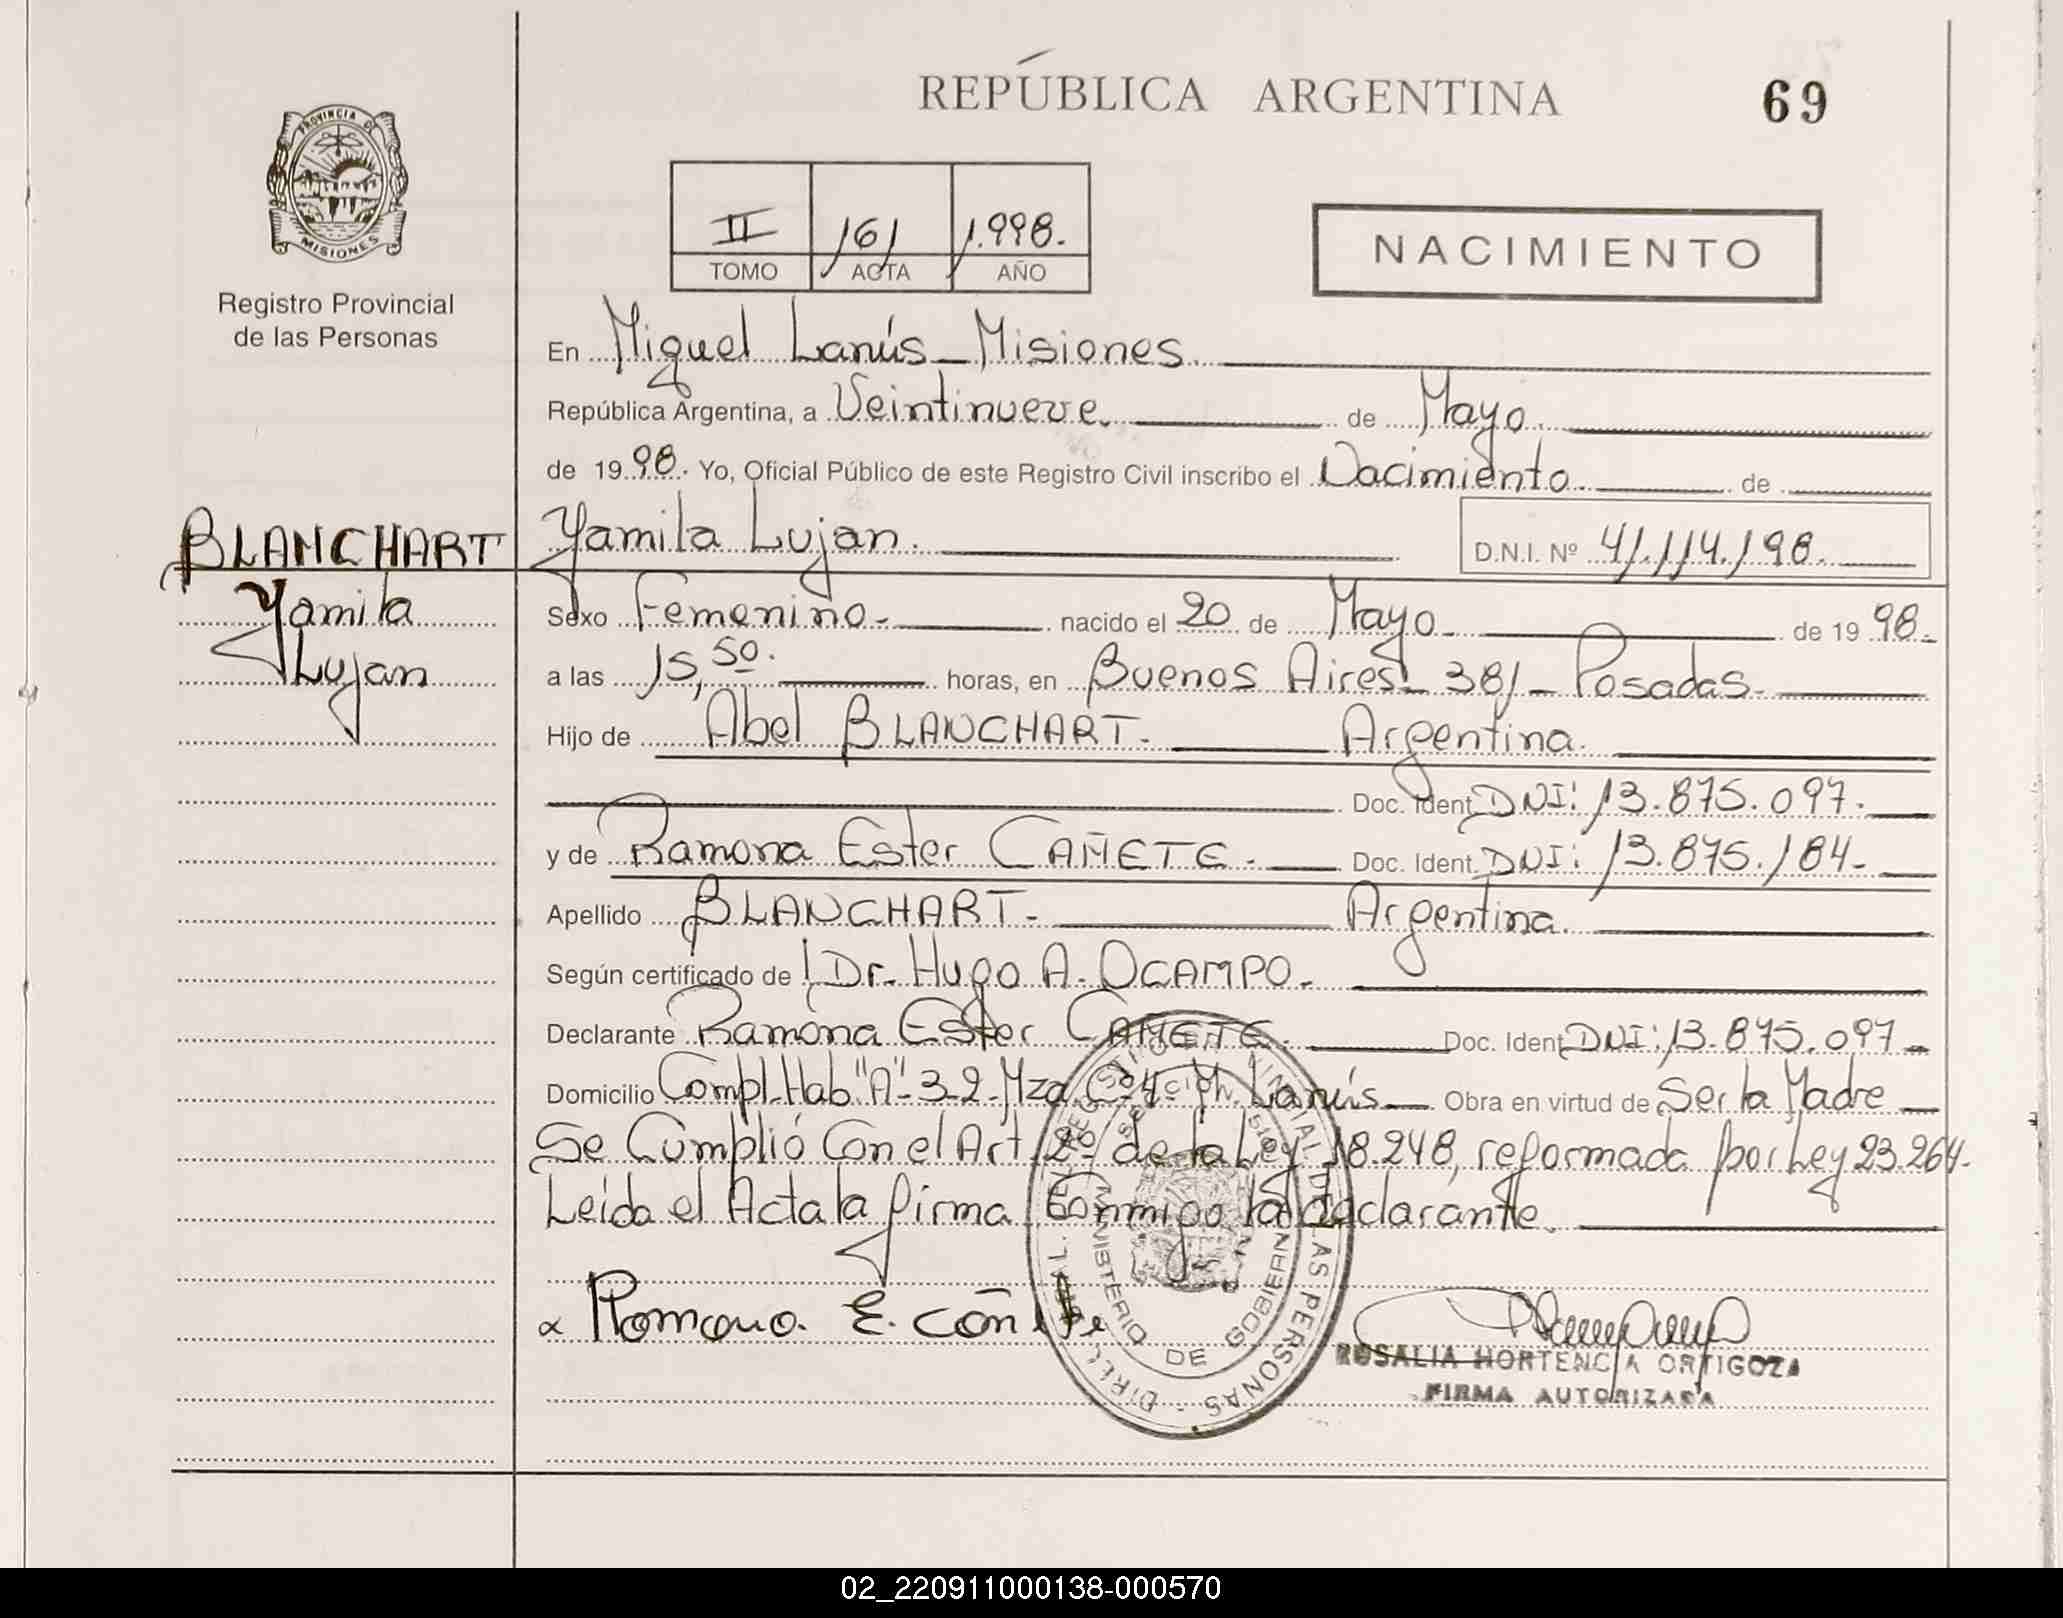 REPÚBLICA ARGENTINA
69
PROVINCIA DE MISIONES
II 161 1.998.
TOMO ACTA AÑO
NACIMIENTO
Registro Provincial
de las Personas
En Miguel Lanús - Misiones
República Argentina, a Veintinueve de Mayo
de 1998. Yo, Oficial Público de este Registro Civil inscribo el Nacimiento de
BLANCHART Yamila Lujan. D.N.I. Nº 41.114.198.
Yamila
Lujan
Sexo Femenino- nacido el 20 de Mayo de 1998.
a las 15,50. horas, en Buenos Aires 381 - Posadas
Hijo de Abel BLANCHART. Argentina.
Doc. Ident. DNI: 13.875.097.
y de Ramona Ester CAÑETE. Doc. Ident. DNI: 13.875.184-
Apellido BLANCHART- Argentina.
Según certificado de Dr. Hugo A. OCAMPO.
Declarante Ramona Ester CAÑETE. Doc. Ident. DNI: 13.875.097
Domicilio Compl. Hab "A"-32-Mza. C-4- M. Lanús Obra en virtud de Ser la Madre
Se Cumplió Con el Art. 2º de la Ley 18.248, reformada por Ley 23.264.
Leída el Acta la firma Conmigo la declarante.
Ramona. E. cañete
ROSALIA HORTENCIA ORTIGOZA
FIRMA AUTORIZADA
MINISTERIO DE GOBIERNO
02_220911000138-000570